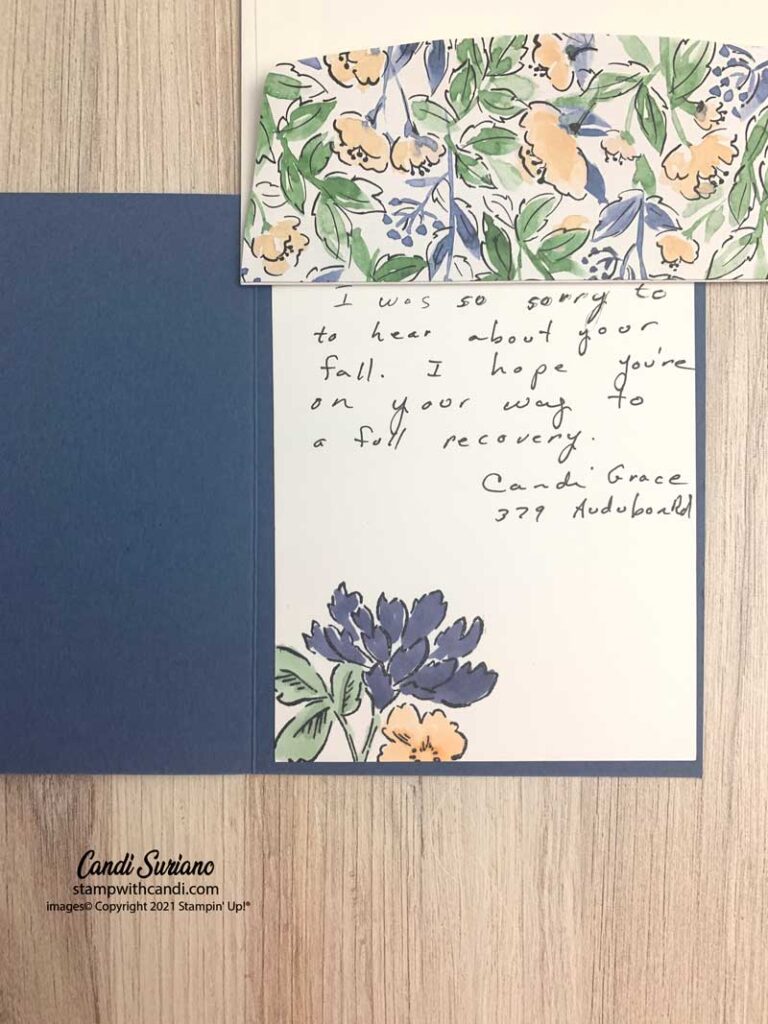 I was so sorry to
to hear about your
fall. I hope you're
on your way to
a full recovery.
Candi Grace
379 Audubon Rd
Candi Suriano
stampwithcandi.com
images© Copyright 2021 Stampin' Up!®